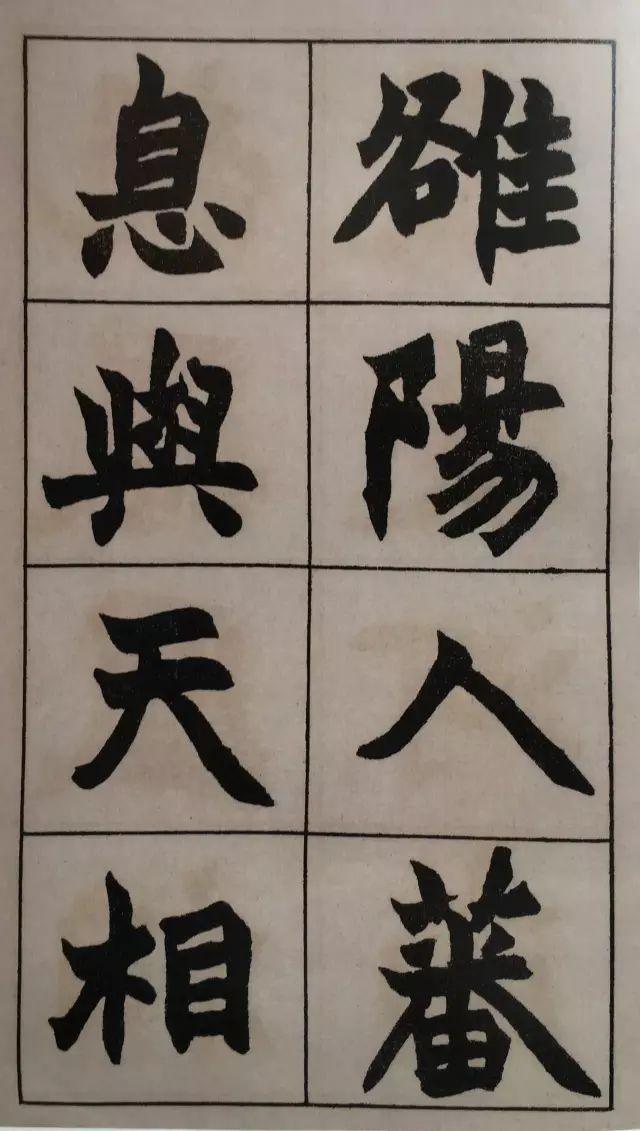 雒陽人蕃
息與天相